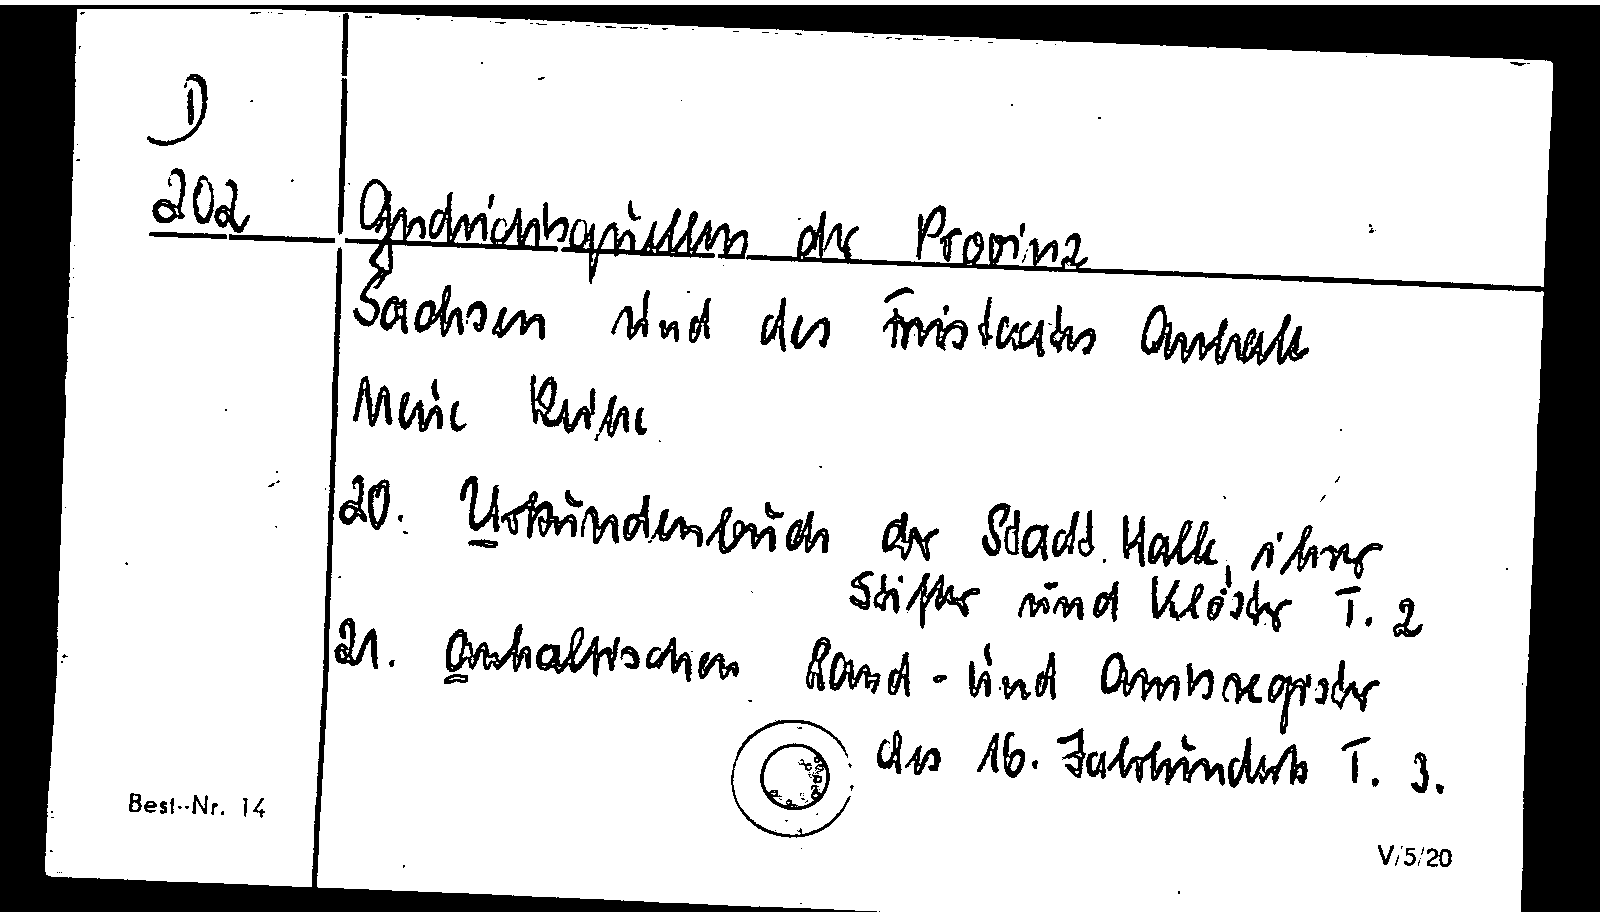 D
202
Geschichtsquellen der Provinz
Sachsen und des Freistaates Anhalt
Neue Reihe
20. Urkundenbuch der Stadt Halle, ihrer
Stifter und Klöster T. 2
21. Anhaltischen Land- und Amtsregister
des 16. Jahrhunderts T. 3.
Best.-Nr. 14
V/5/20